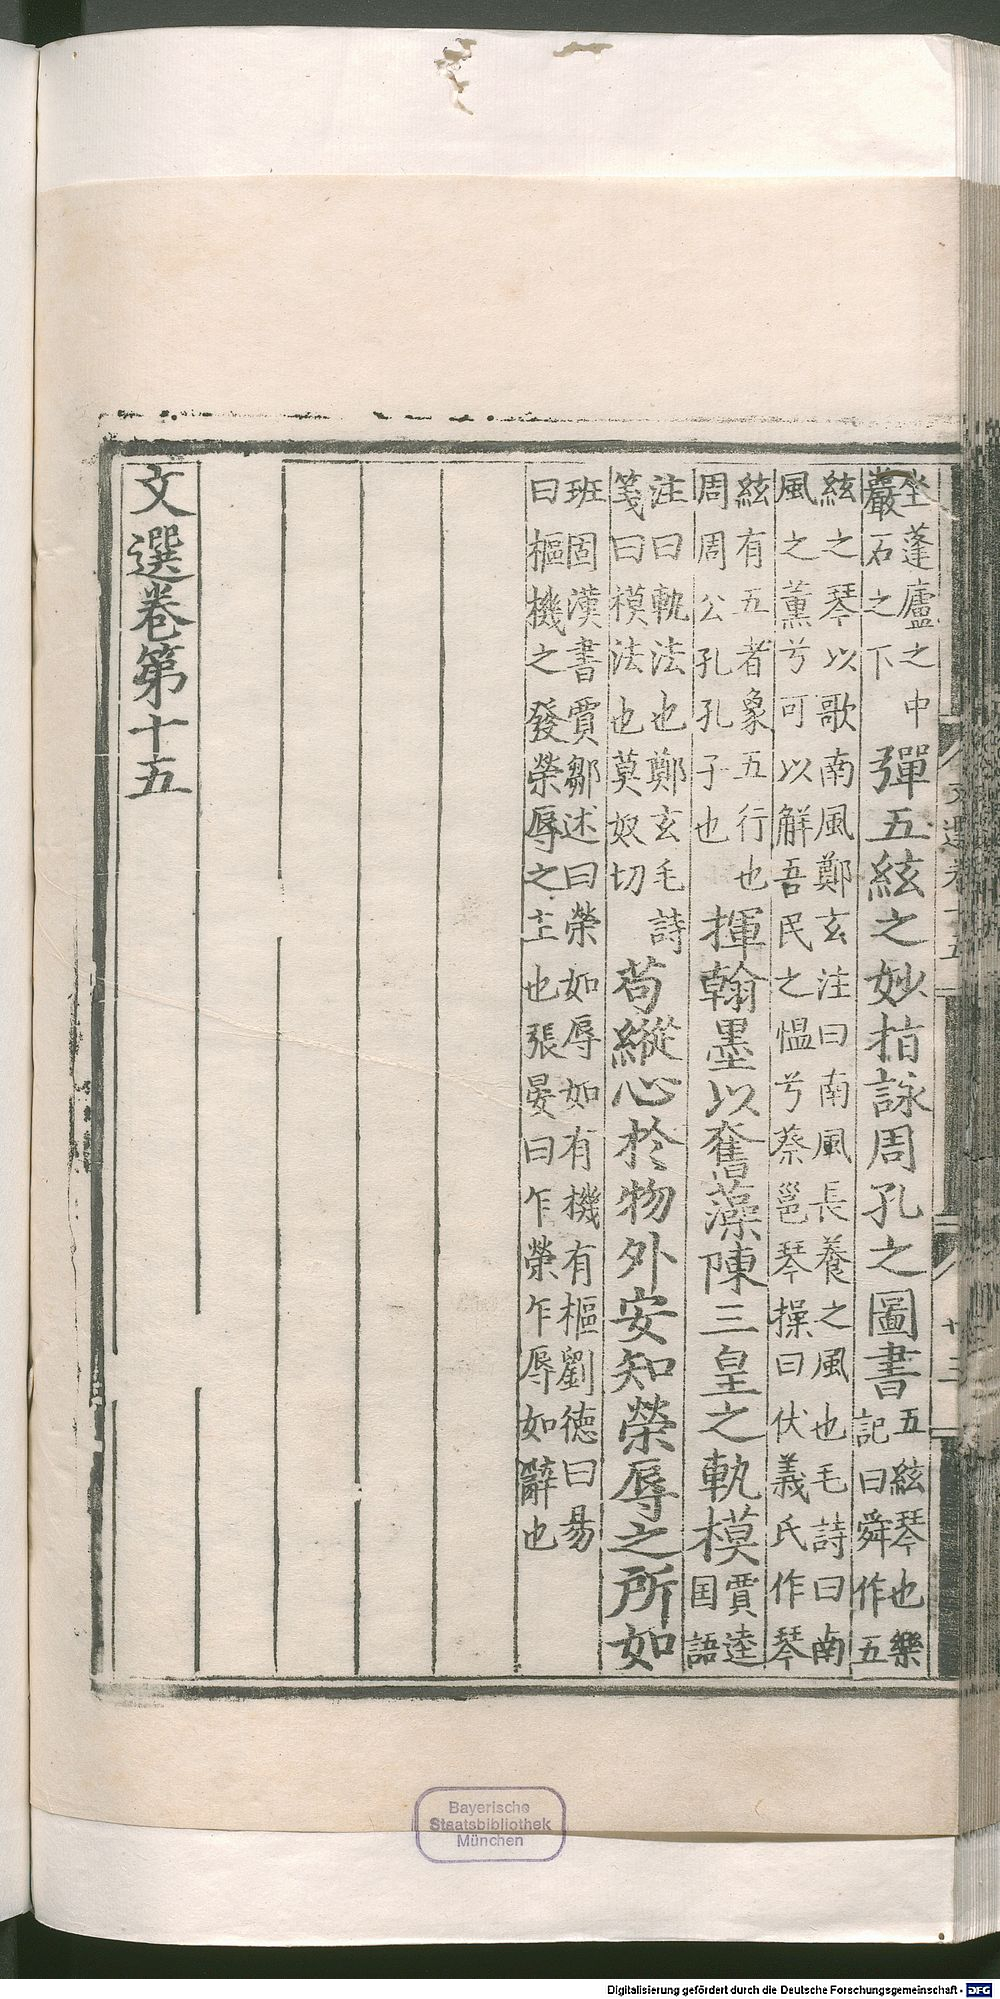 坐蓬廬之中
巖石之下
彈五絃之妙指詠周孔之圖書
五絃琴也樂
記曰舜作五
絃之琴以歌南風鄭玄注曰南風長養之風也毛詩曰南
風之薰兮可以解吾民之慍兮蔡邕琴操曰伏羲氏作琴
絃有五者象五行也
周周公孔孔子也
揮翰墨以奮藻陳三皇之軌模
賈逵
国語
注曰軌法也鄭玄毛詩
箋曰模法也莫奴切
苟縱心於物外安知榮辱之所如
班固漢書賈鄒述曰榮如辱如有機有樞劉德曰易
曰樞機之發榮辱之主也張晏曰乍榮乍辱如辭也
文選卷第十五
文選卷十五
廿三
Bayerische
Staatsbibliothek
München
Digitalisierung gefördert durch die Deutsche Forschungsgemeinschaft - DFG